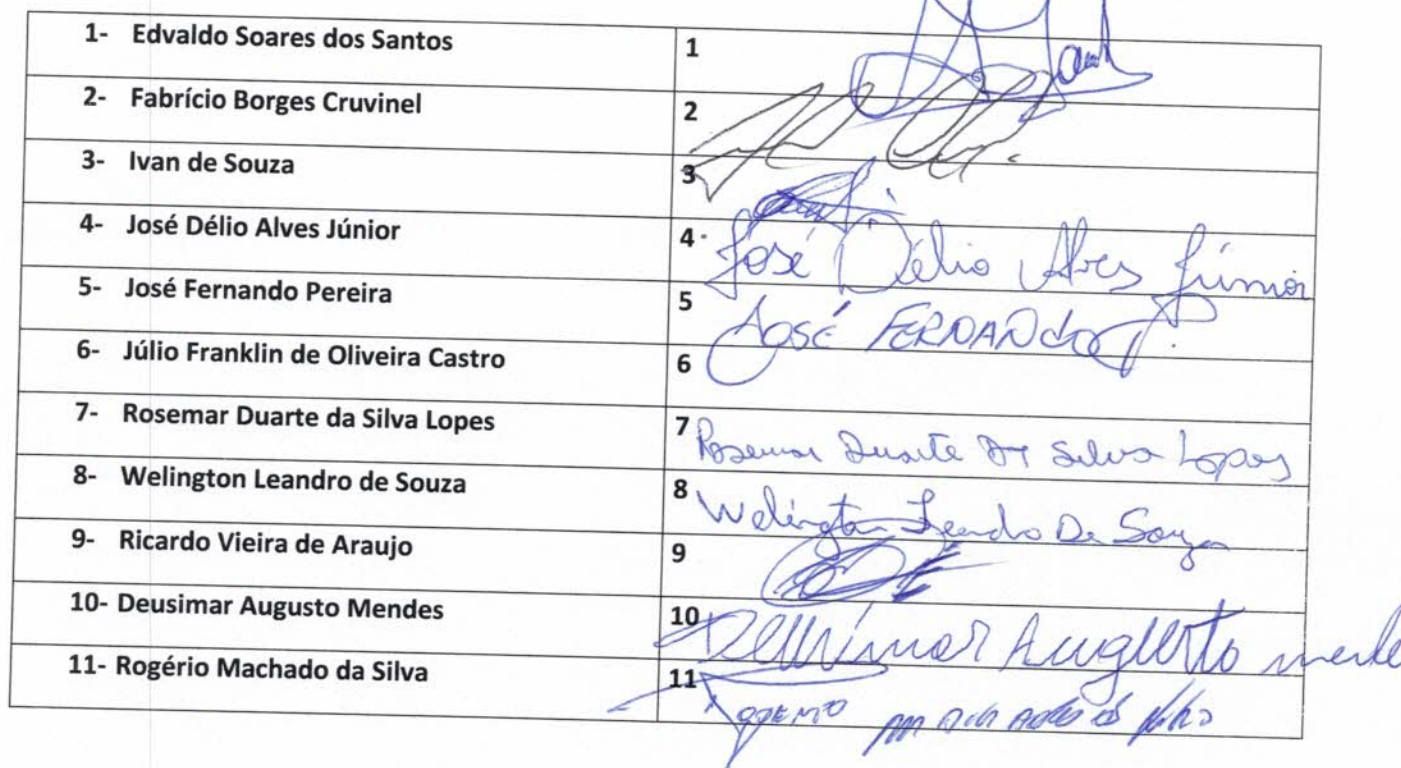 1- Edvaldo Soares dos Santos 1
2- Fabrício Borges Cruvinel 2
3- Ivan de Souza 3
4- José Délio Alves Júnior 4 José Délio Alves Júnior
5- José Fernando Pereira 5 JOSÉ FERNANdo P.
6- Júlio Franklin de Oliveira Castro 6
7- Rosemar Duarte da Silva Lopes 7 Rosemar Duarte Da Silva Lopes
8- Welington Leandro de Souza 8 Welington Leandro De Souza
9- Ricardo Vieira de Araujo 9
10- Deusimar Augusto Mendes 10 Deusimar Augusto
11- Rogério Machado da Silva 11